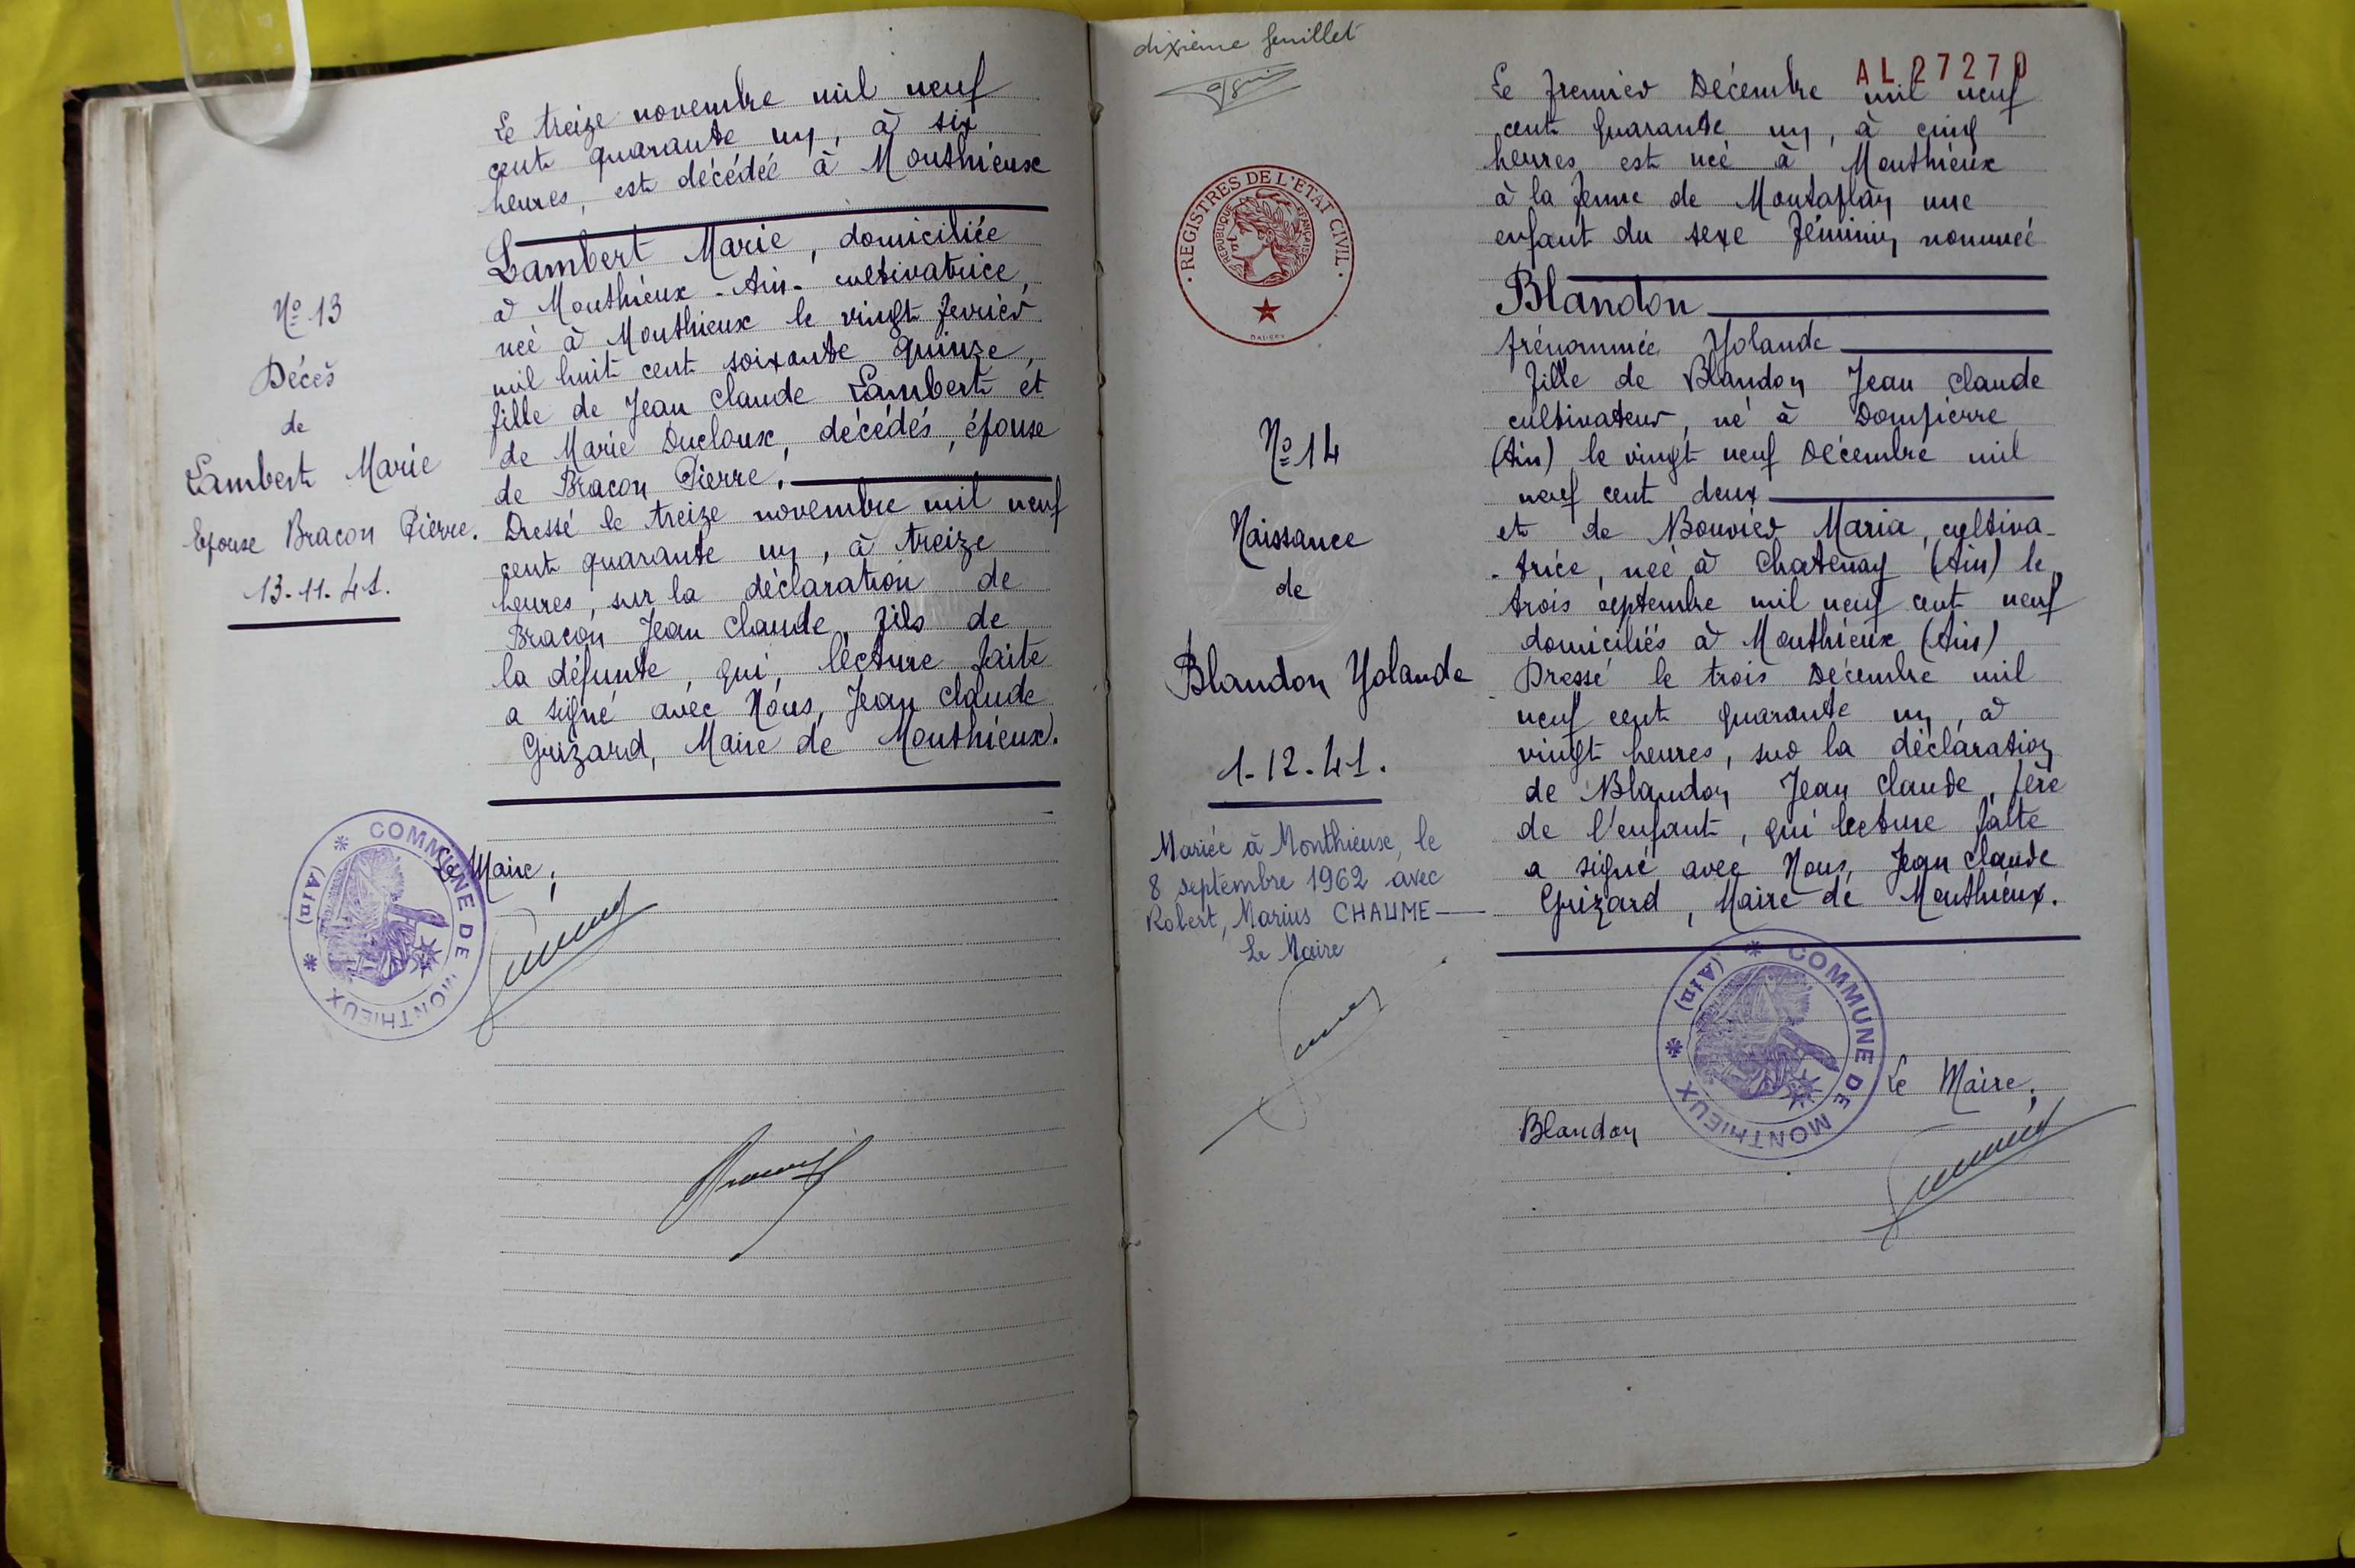 Le treize novembre mil neuf
cent quarante un, à six
heures, est décédée à Monthieux
Lambert Marie, domiciliée
à Monthieux - Ain - cultivatrice,
née à Monthieux le vingt fevrier
mil huit cent soixante quinze,
fille de Jean Claude Lambert et
de Marie Ducloux, décédés, épouse
de Bracon Pierre.
Dressé le treize novembre mil neuf
cent quarante un, à treize
heures, sur la déclaration de
Bracon Jean Claude, fils de
la défunte, qui, lecture faite
a signé avec Nous, Jean Claude
Grizard, Maire de Monthieux.
N° 13
Décès
de
Lambert Marie
Epouse Bracon Pierre.
13-11-41.
Le Maire,
COMMUNE DE MONTHIEUX
(Ain)
dixième feuillet
REGISTRES DE L'ETAT CIVIL
REPUBLIQUE FRANÇAISE
N° 14
Naissance
de
Blandon Yolande
1-12-41.
Mariée à Monthieux, le
8 septembre 1962 avec
Robert, Marius CHAUME
Le Maire
AL 27270
Le premier Décembre mil neuf
cent quarante un, à cinq
heures est née à Monthieux
à la ferme de Montaplan une
enfant du sexe féminin nommée
Blandon
prénommée Yolande
fille de Blandon Jean Claude
cultivateur, né à Dompierre
(Ain) le vingt neuf Décembre mil
neuf cent deux
et de Bouvier Maria, cultiva-
-trice, née à Chatenay (Ain) le
trois septembre mil neuf cent neuf
domiciliés à Monthieux (Ain)
Dressé le trois Décembre mil
neuf cent quarante un, à
vingt heures, sur la déclaration
de Blandon Jean Claude, père
de l'enfant, qui lecture faite
a signé avec Nous, Jean Claude
Grizard, Maire de Monthieux.
COMMUNE DE MONTHIEUX
(Ain)
Le Maire,
Blandon